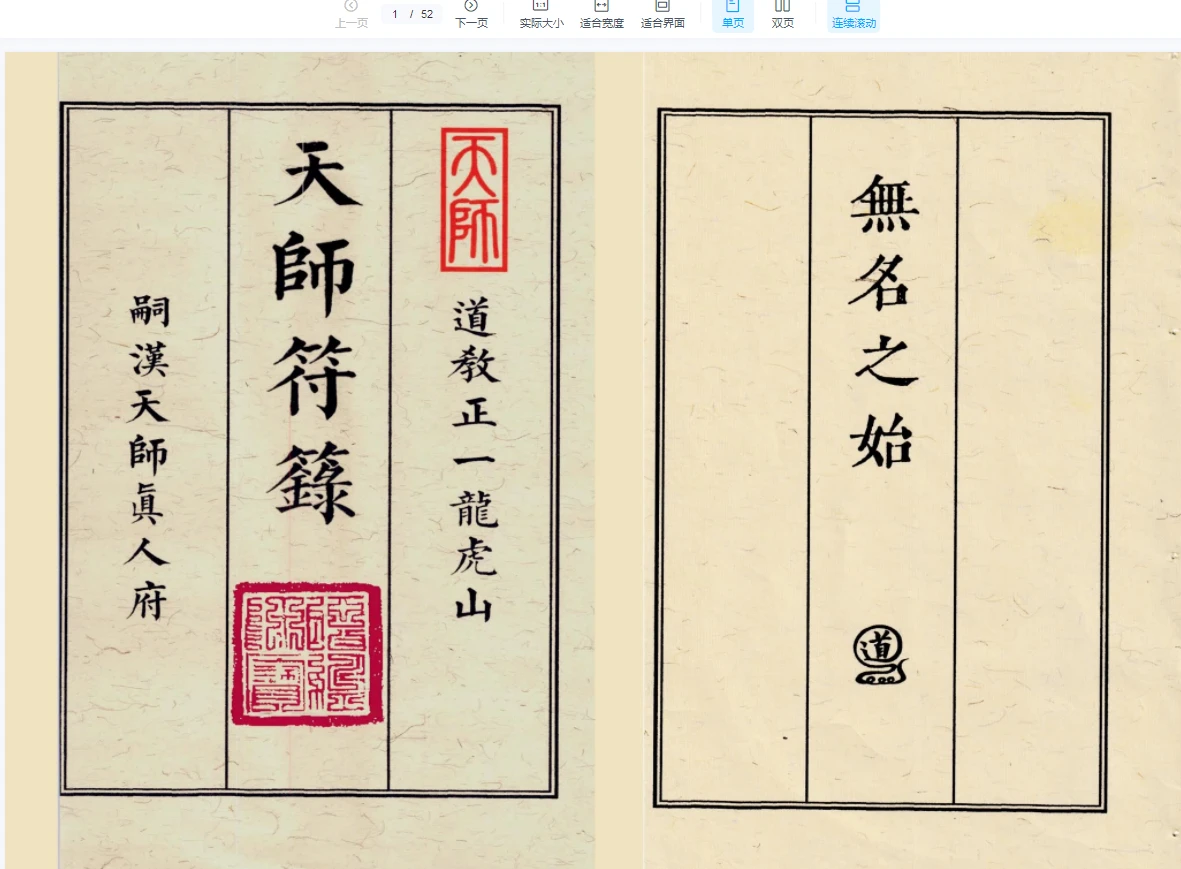 上一页
1 / 52
下一页
1:1
实际大小
适合宽度
适合界面
单页
双页
连续滚动
天師
道教正一龍虎山
天師符籙
嗣漢天師眞人府
無名之始
道